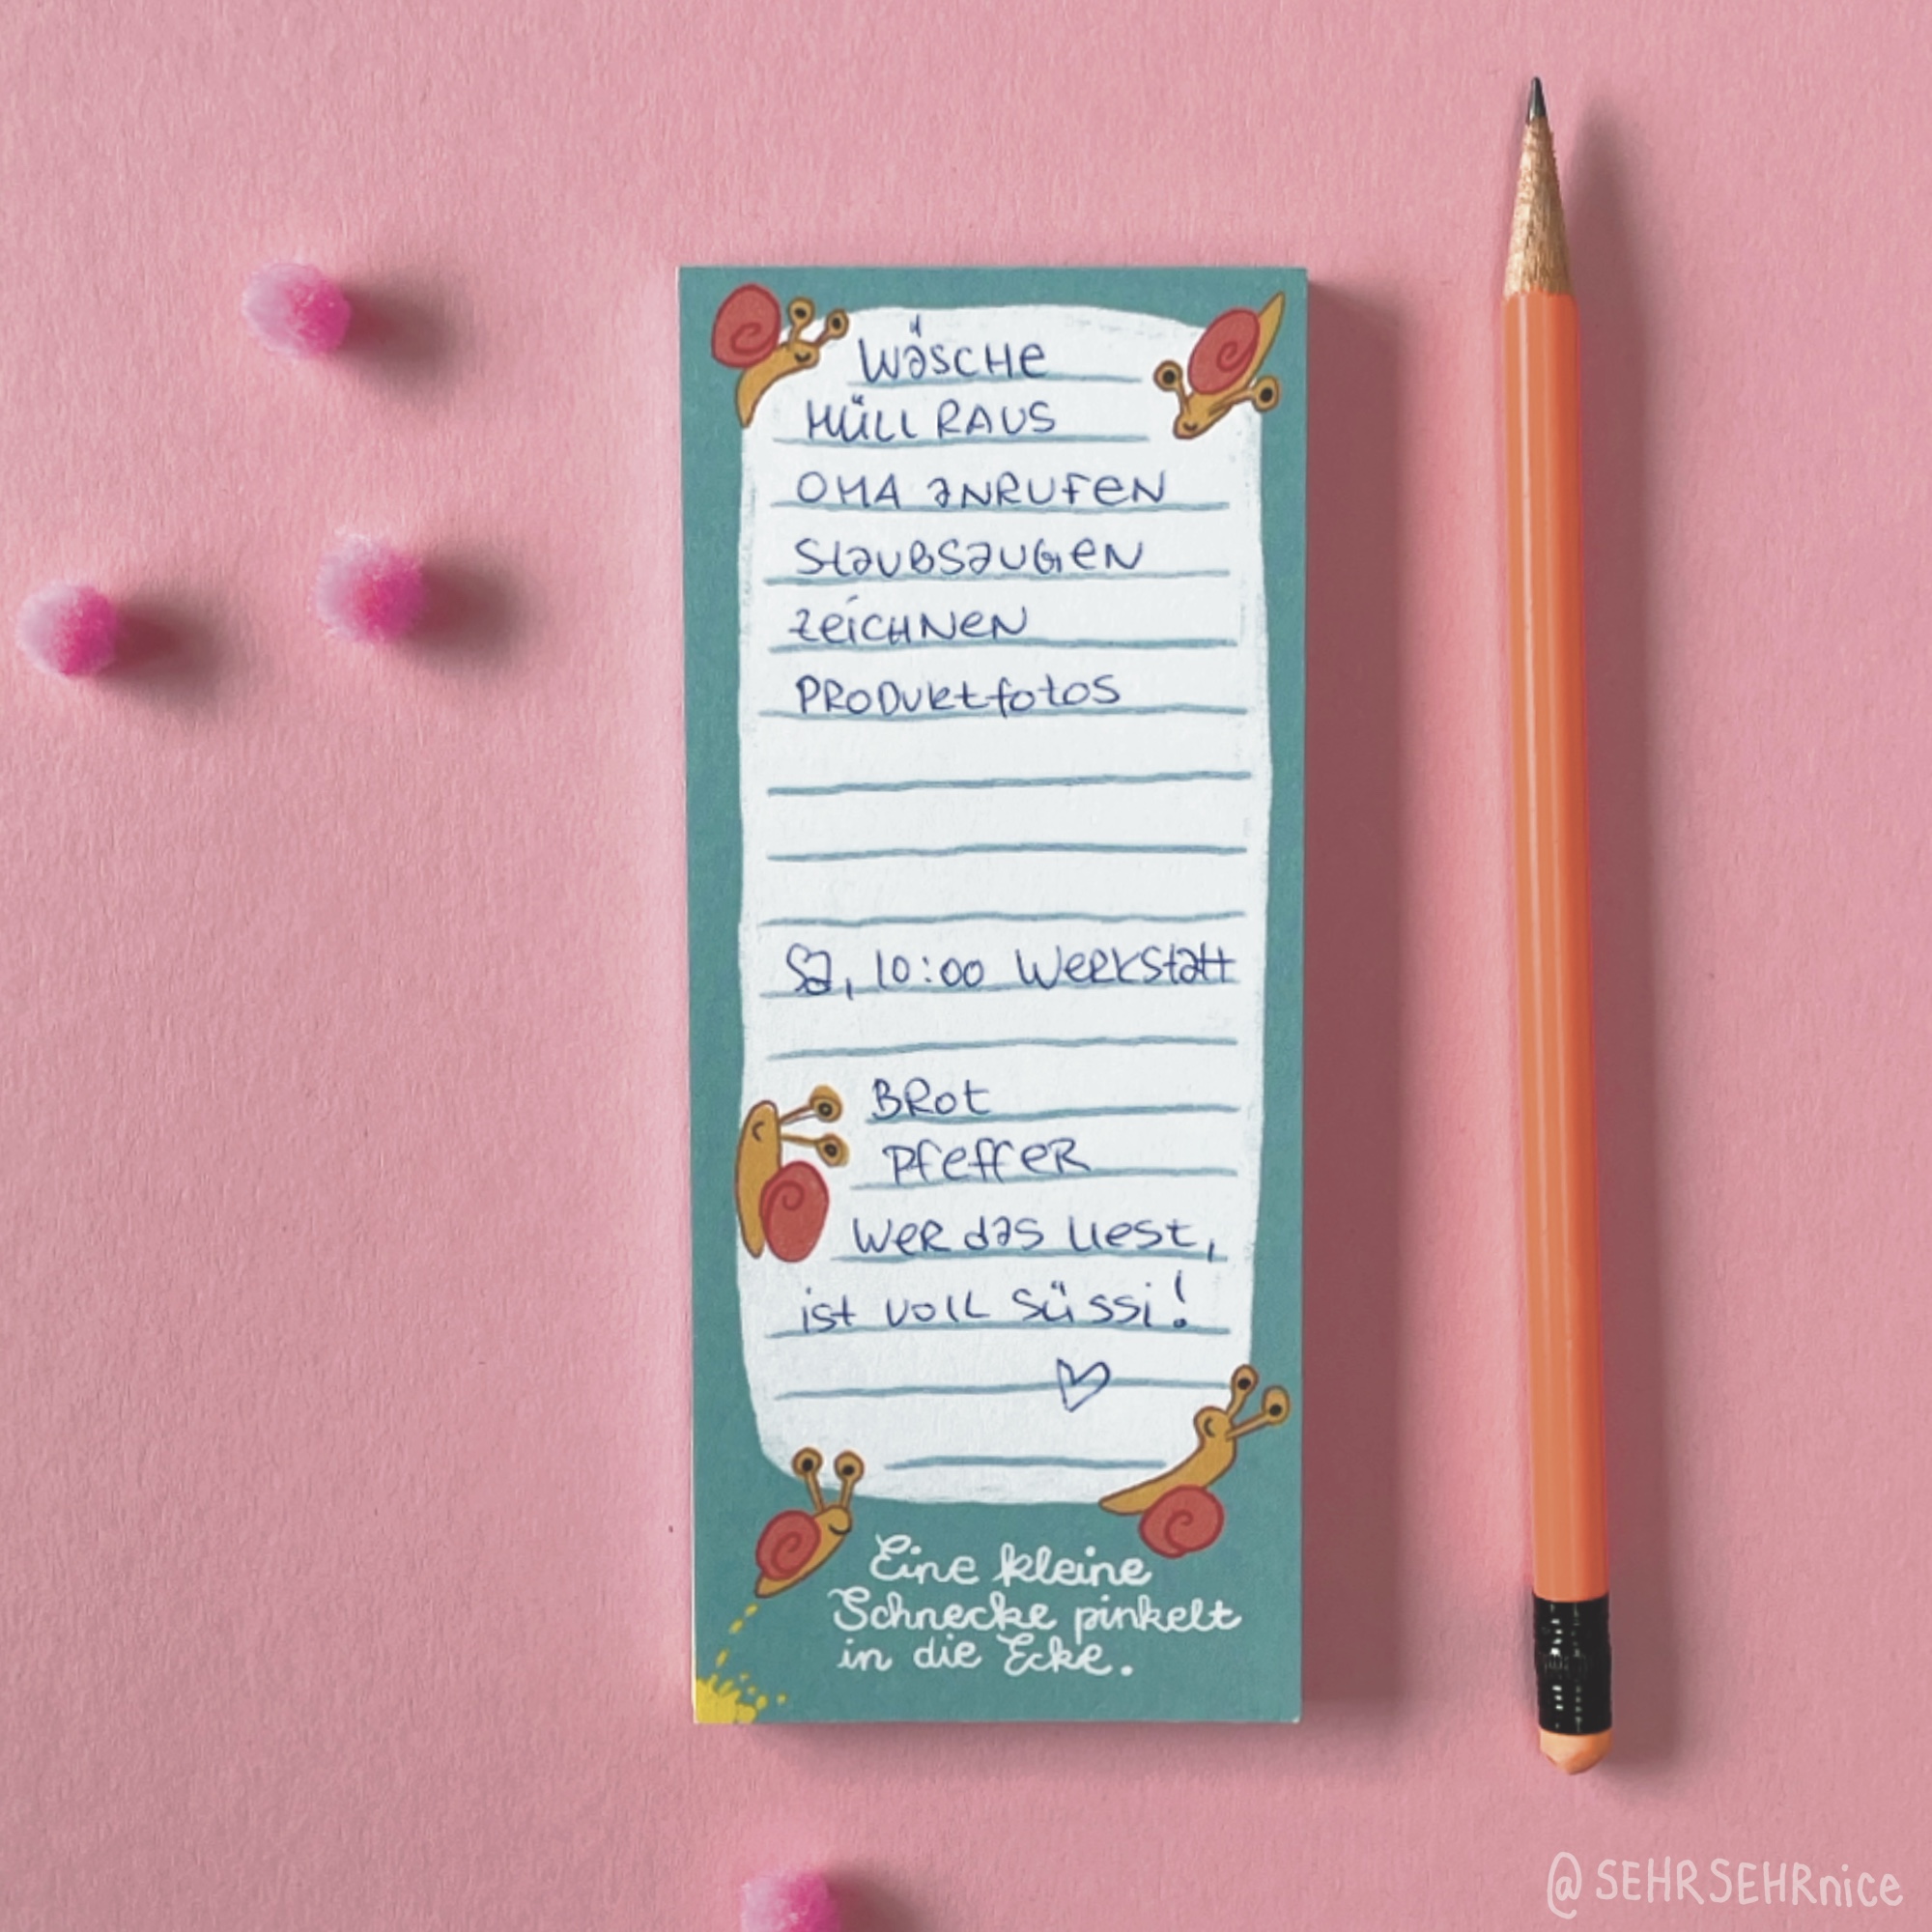 Wäsche
MÜLL RAUS
OMA ANRUFEN
Staubsaugen
zeichnen
Produktfotos
Sa, 10:00 Werkstatt
Brot
Pfeffer
Wer das liest,
ist voll süssi!
Eine kleine
Schnecke pinkelt
in die Ecke.
@SEHRSEHRnice